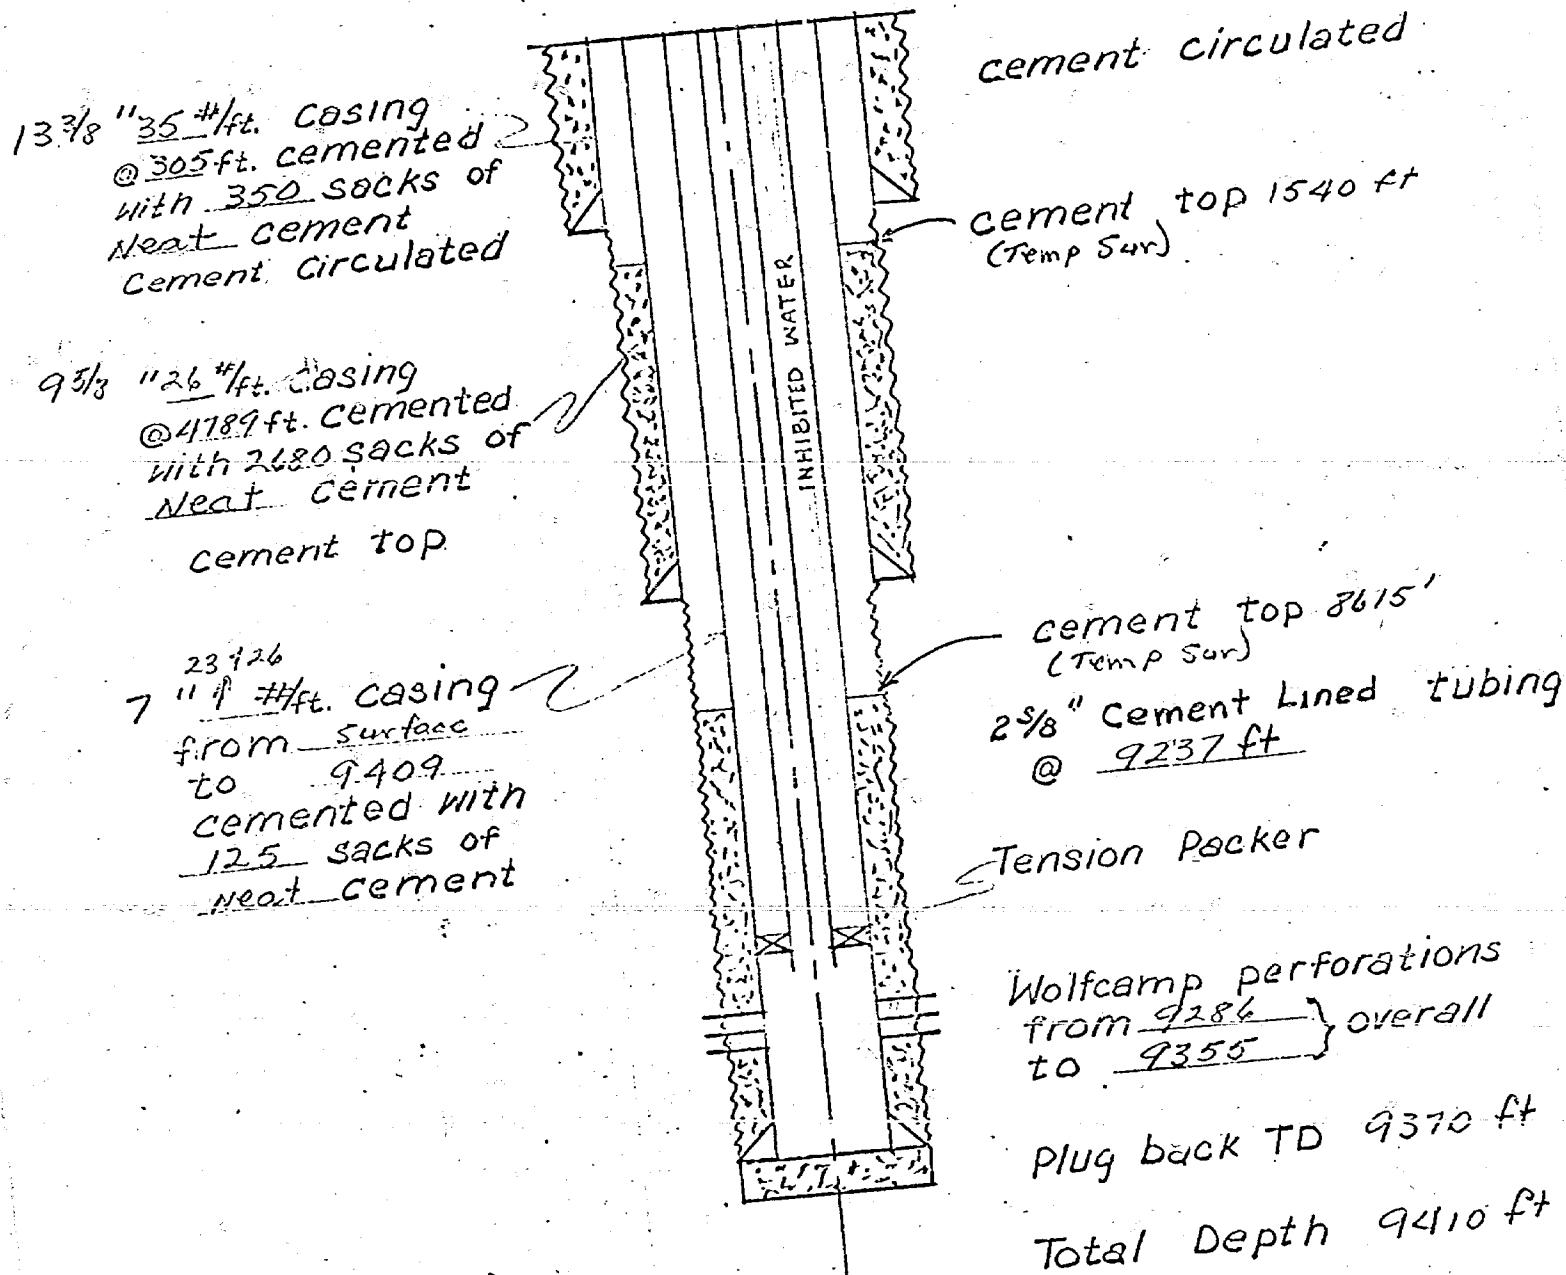 13 3/8 "35 #/ft. casing
@ 305 ft. cemented
with 350 sacks of
Neat cement
Cement Circulated
9 5/8 "26 #/ft. casing
@ 4789 ft. cemented
with 2680 sacks of
Neat cement
cement top
23 & 26
7 " #/ft. casing
from surface
to 9409
cemented with
125 sacks of
Neat cement
INHIBITED WATER
cement circulated
cement top 1540 ft
(Temp Sur)
cement top 8615'
(Temp Sur)
2 3/8" Cement Lined tubing
@ 9237 ft
Tension Packer
Wolfcamp perforations
from 9286 } overall
to 9355
Plug back TD 9370 ft
Total Depth 9410 ft